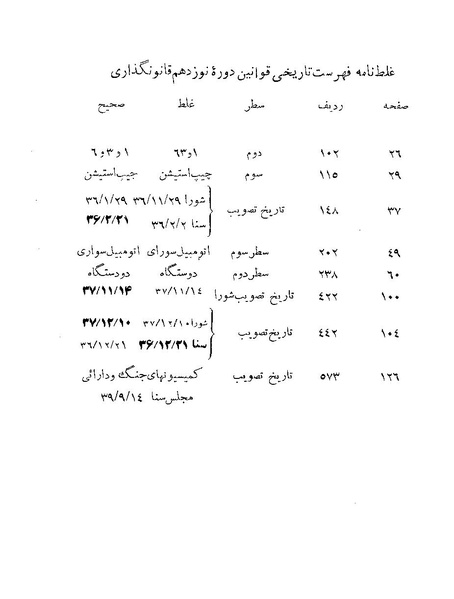 غلطنامه فهرست تاریخی قوانین دورهٔ نوزدهم قانونگذاری
صفحه ردیف سطر غلط صحیح
۲۶ ۱۰۲ دوم ۱و۶۳ ۱و۳و۶
۲۹ ۱۱۵ سوم چیپ‌استیشن جیپ‌استیشن
۳۷ ۱۴۸ تاریخ تصویب شورا ۳۶/۱۱/۲۹ ۳۶/۱/۲۹
سنا ۳۶/۲/۲ ۳۶/۲/۲۱
۴۹ ۲۰۲ سطر سوم اتومبیل سورای اتومبیل سواری
۶۰ ۲۳۸ سطر دوم دوستگاه دودستگاه
۱۰۰ ۴۲۲ تاریخ تصویب شورا ۳۷/۱۱/۱۴ ۳۷/۱۱/۱۴
۱۰۴ ۴۴۲ تاریخ تصویب شورا ۳۷/۱۲/۱۰ ۳۷/۱۲/۱۰
سنا ۳۶/۱۲/۲۱ ۳۶/۱۲/۲۱
۱۲۶ ۵۷۳ تاریخ تصویب کمیسیونهای جنگ و دارائی
مجلس سنا ۳۹/۹/۱۴